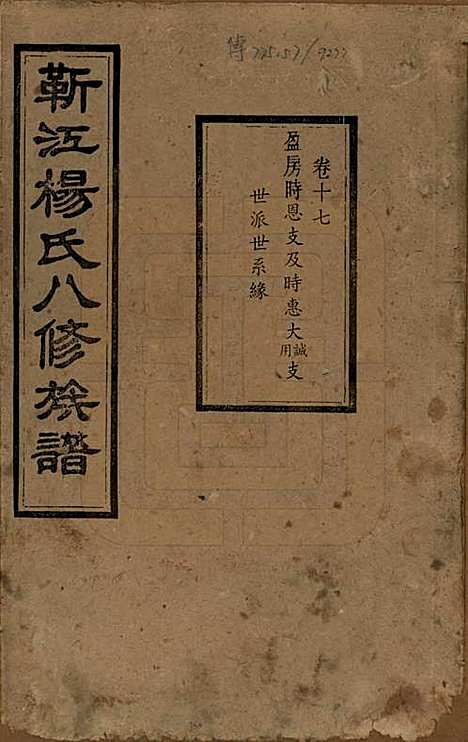 傳 775.57/9277
靳江楊氏八修族譜
卷十七
盈房時恩支及時惠大誠用支
世派世系緣